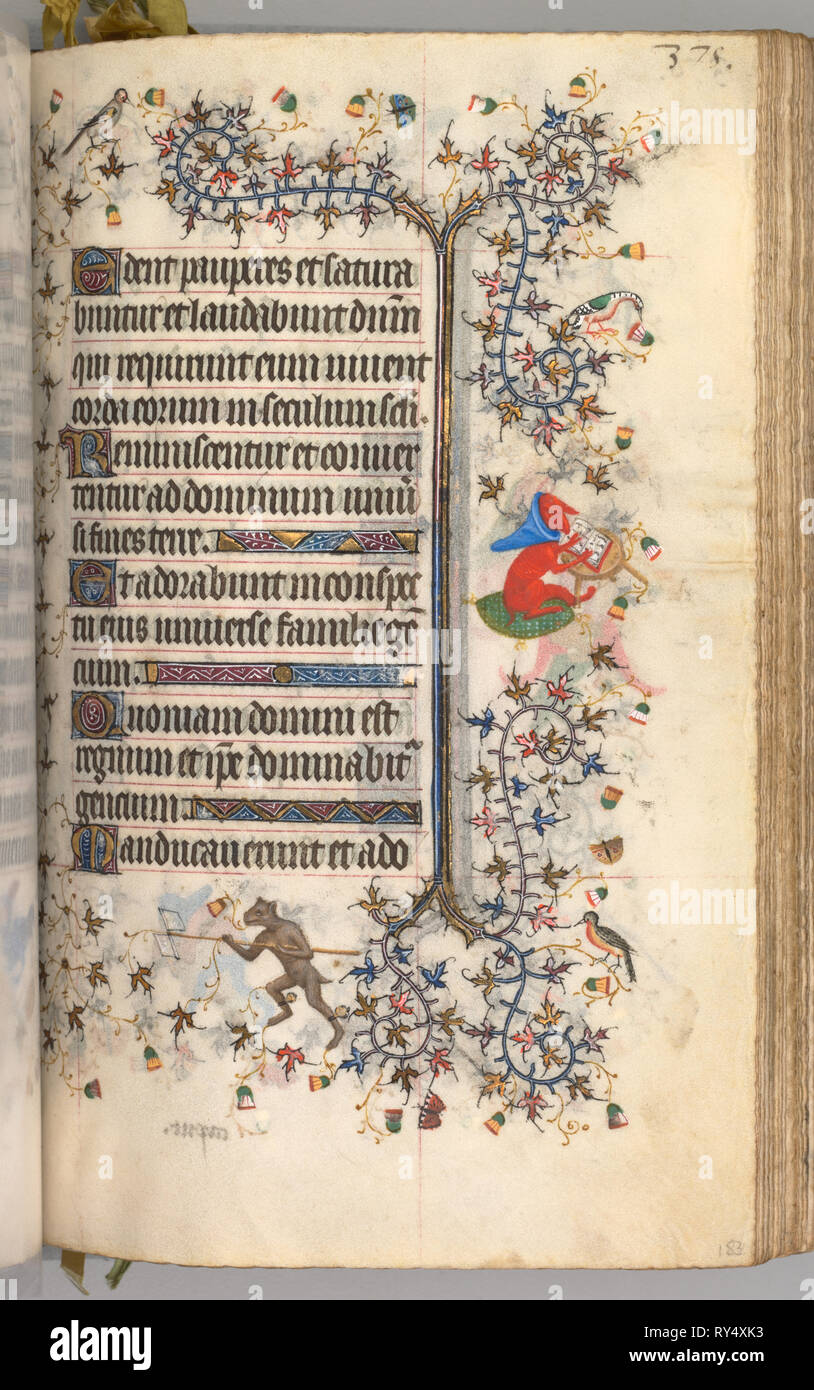 375.
Edent pauperes et satura
buntur et laudabunt dnm̄
qui requirunt eum uiuent
corda eorum in seculum scl̄i.
Reminiscentur et conuer
tentur ad dominum uniuͥ
si fines terre.
Et adorabunt in conspec
tu eius uniuerse familie gē
cium.
Quoniam domini est
regnum et ip̄e dominabitᷣ
gencium.
Manducauerunt et ado
183
alamy
Image ID: RY4XK3
www.alamy.com